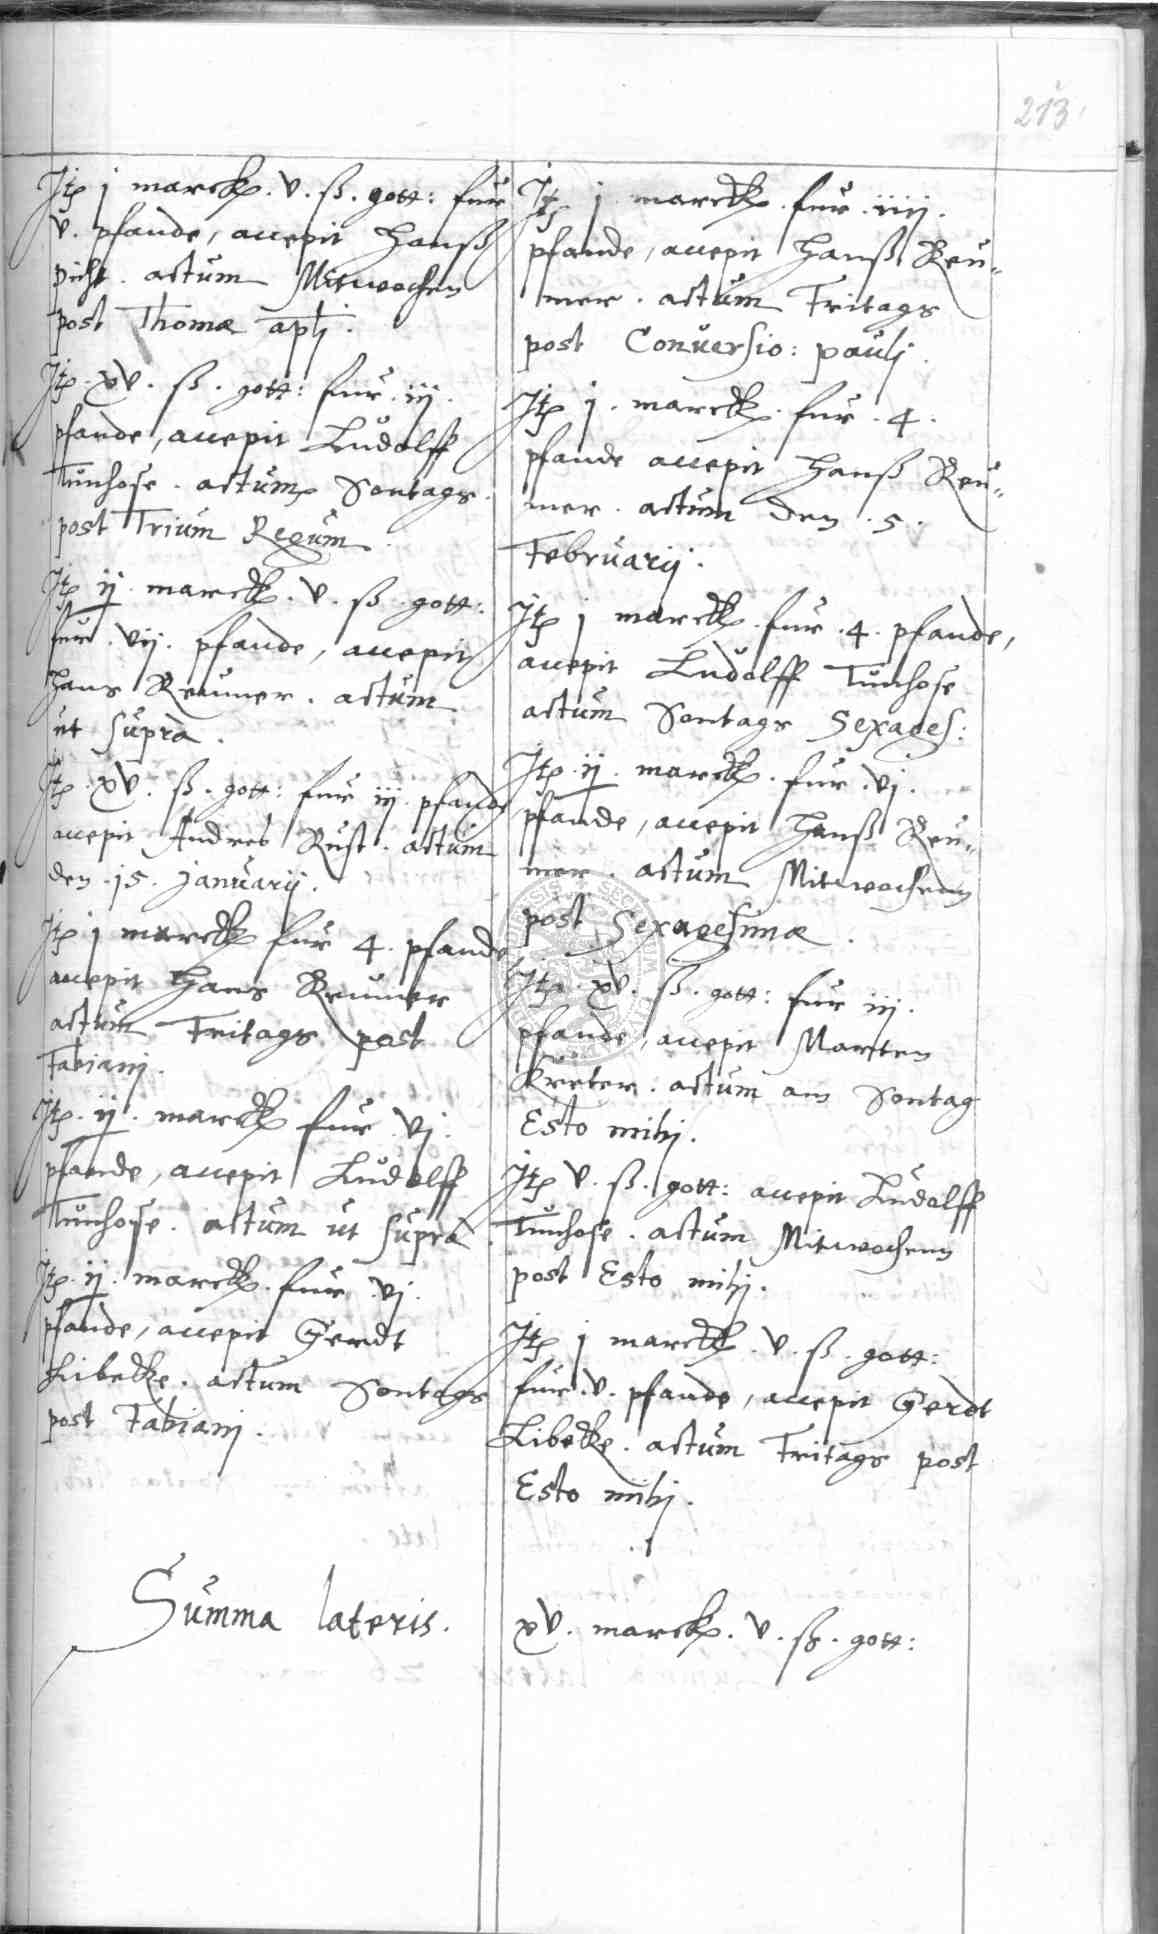 213
Itē j marck. v. ß. gott: fur
v. pfande, accepit Hanß
picht. actum Mitwochen
post Thomæ apli.
Itē. xv. ß. gott: fur. iij.
pfande, accepit Ludolff
Tunhose. actum Sontags.
post Trium Regum.
Itē ij. marck. v. ß. gott:
fur. vij. pfande, accepit
Hans Reumer. actum
ut supra.
Itē. xv. ß. gott: fur iij. pfande
accepit Andres Rust. actum
den. 15. Januarij.
Itē j marck fur 4. pfande
accepit Hans Reumer
actum Fritags post
Fabianj.
Itē. ij. marck fur. vj.
pfande, accepit Ludolff
Tunhose. actum ut supra.
Itē. ij. marck. fur. vj.
pfande, accepit Gerdt
Libecke. actum Sontags
post Fabianj.
Itē j marck. fur. iiij.
pfande, accepit Hanß Reu=
mer. actum Fritags
post Conuersio: paulj.
Itē j. marck. fur. 4.
pfande accepit Hanß Reu=
mer. actum den. 5.
Februarij.
Itē j marck. fur. 4. pfande,
accepit Ludolff Tunhose
actum Sontags Sexages:
Itē. ij. marck. fur. vj.
pfande, accepit Hanß Reu=
mer. actum Mitwochenn
post Sexagesimæ.
Itē. xv. ß. gott: fur iij.
pfande, accepit Marten
Kreter. actum am Sontag
Esto mihj.
Itē v. ß. gott: accepit Ludolff
Tunhose. actum Mitwochenn
post Esto mihj.
Itē j marck. v. ß. gott:
fur. v. pfande, accepit Gerdt
Libecke. actum Fritags post
Esto mihj.
Summa lateris. xv. marck. v. ß. gott: